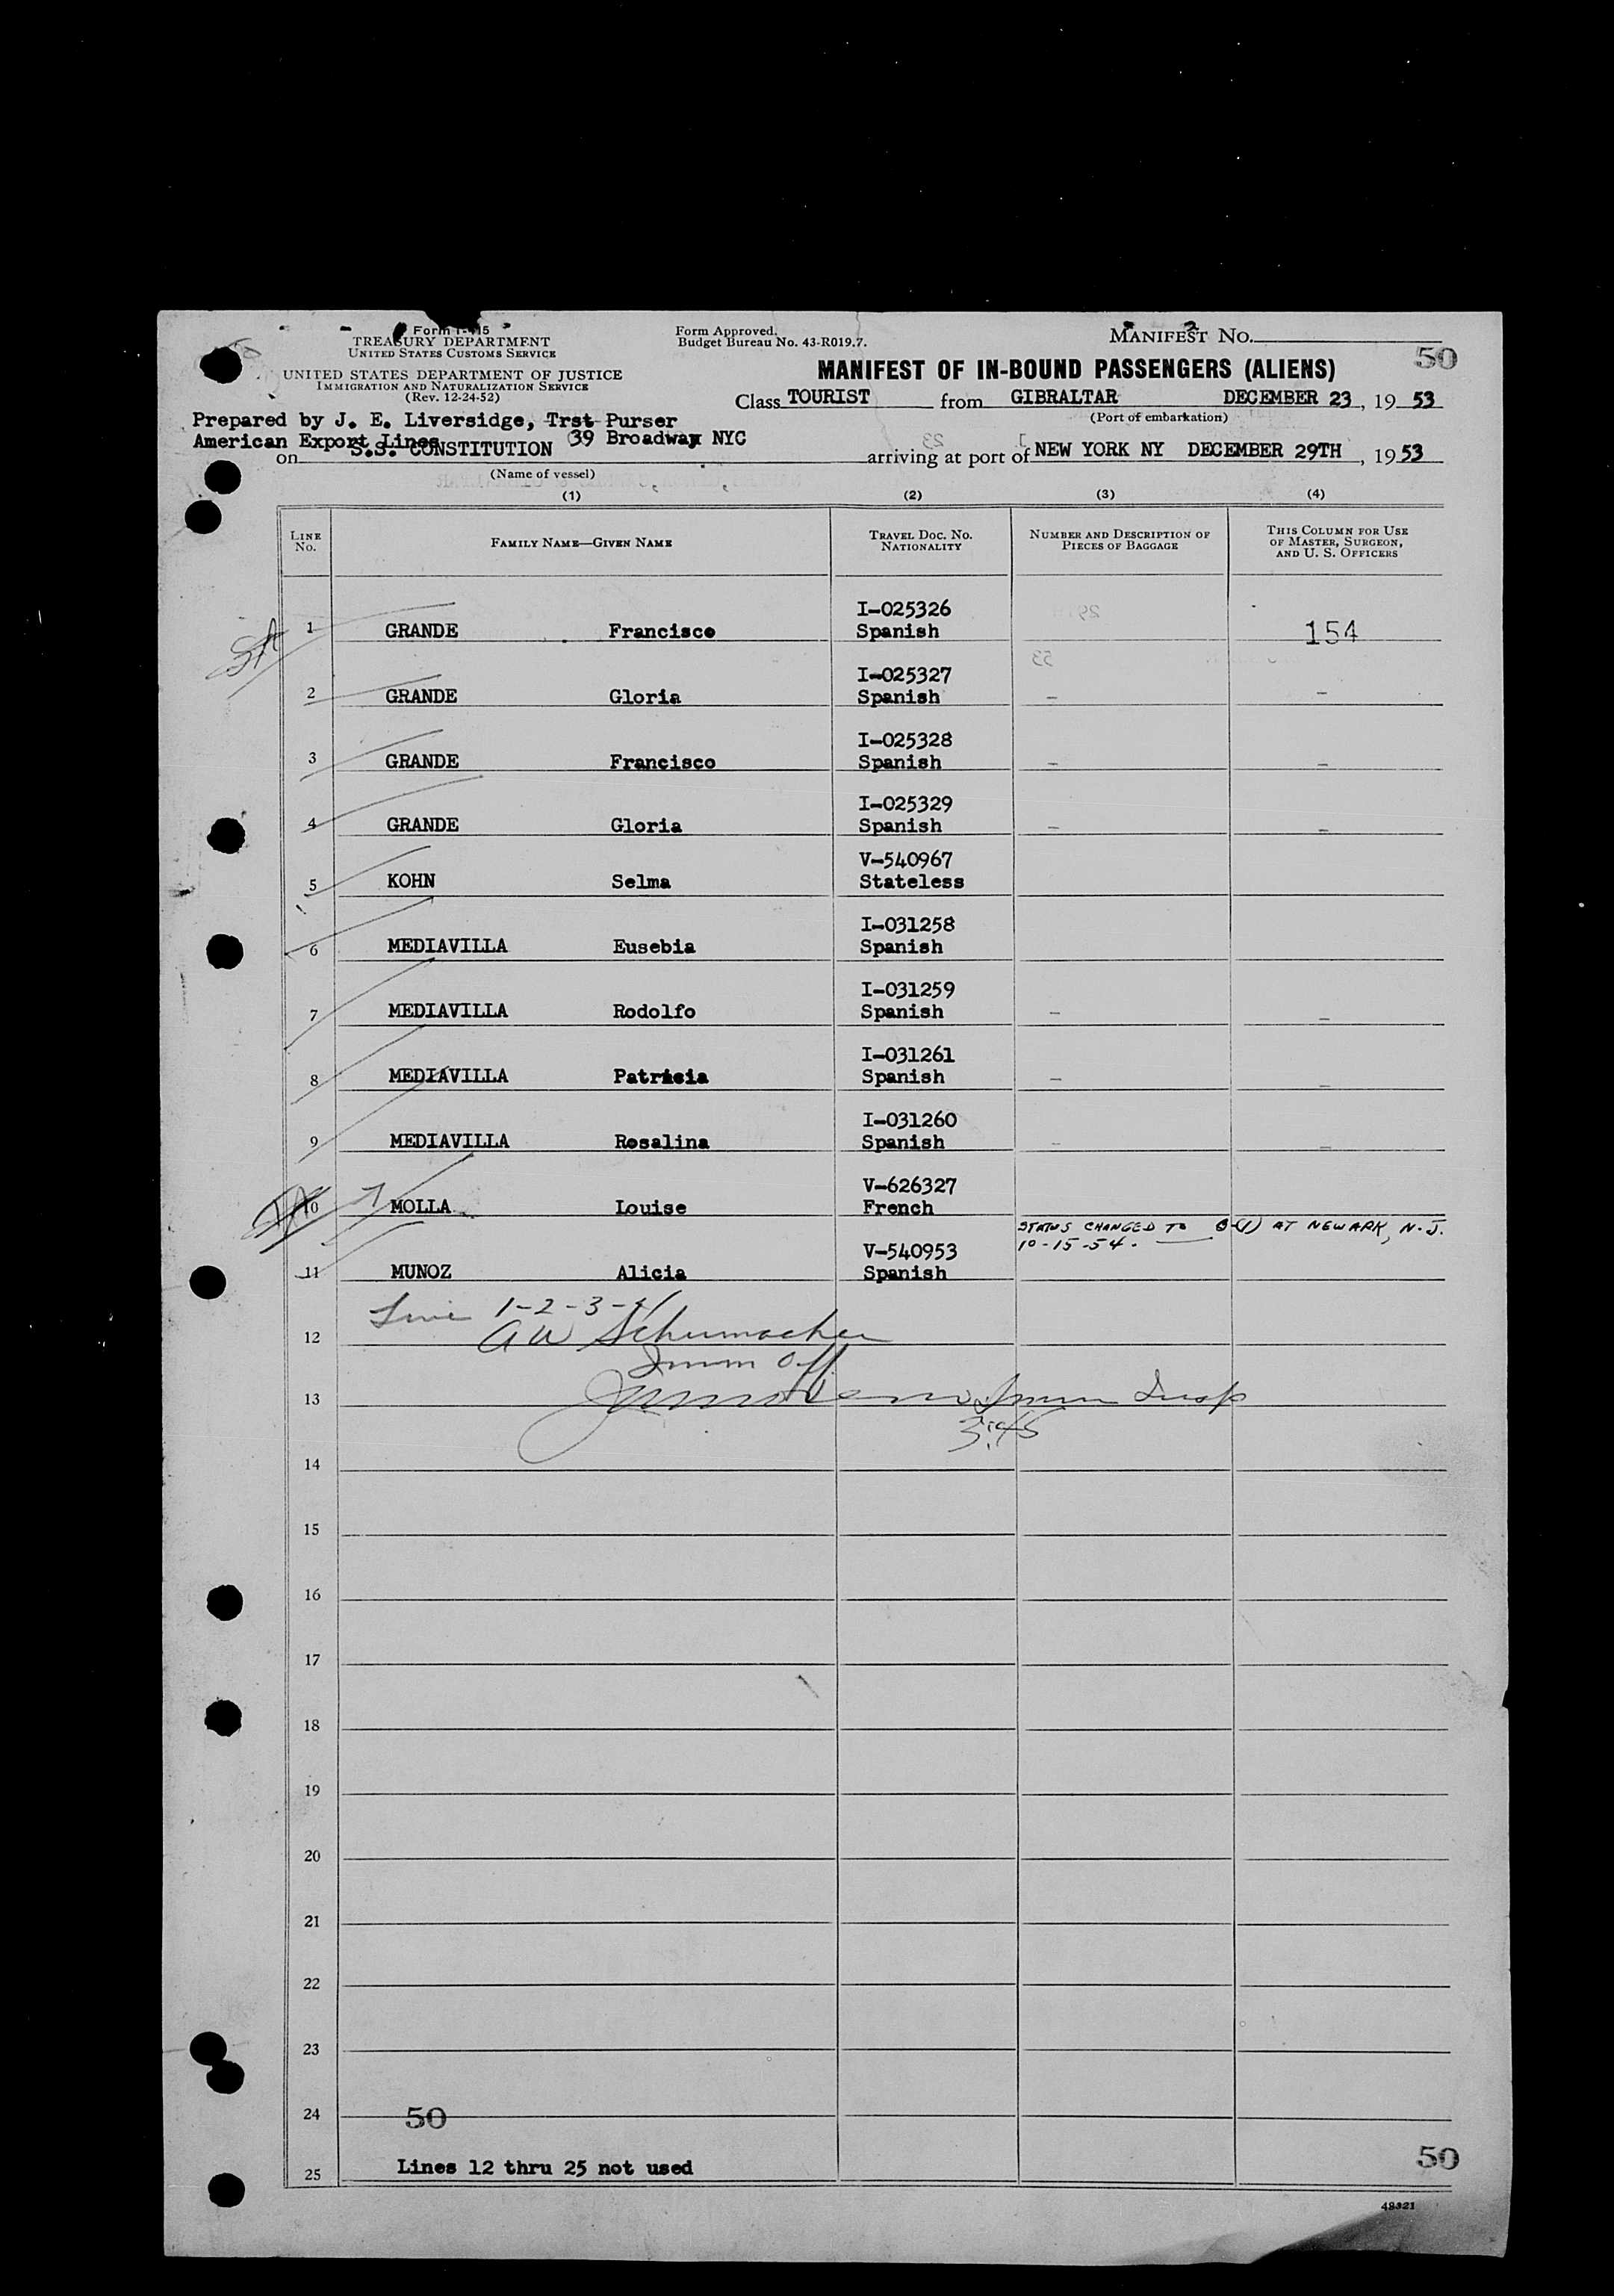 Form I-415
TREASURY DEPARTMENT
UNITED STATES CUSTOMS SERVICE
UNITED STATES DEPARTMENT OF JUSTICE
IMMIGRATION AND NATURALIZATION SERVICE
(Rev. 12-24-52)
Form Approved.
Budget Bureau No. 43-R019.7.
MANIFEST NO.
50
MANIFEST OF IN-BOUND PASSENGERS (ALIENS)
Class TOURIST from GIBRALTAR DECEMBER 23, 19 53
(Port of embarkation)
Prepared by J. E. Liversidge, Trst Purser
American Export Lines 39 Broadway NYC
on S.S. CONSTITUTION arriving at port of NEW YORK NY DECEMBER 29TH, 19 53
(Name of vessel)
(1) (2) (3) (4)
LINE NO. FAMILY NAME—GIVEN NAME TRAVEL DOC. NO. NATIONALITY NUMBER AND DESCRIPTION OF PIECES OF BAGGAGE THIS COLUMN FOR USE OF MASTER, SURGEON, AND U. S. OFFICERS
I-025326
1 GRANDE Francisco Spanish 154
I-025327
2 GRANDE Gloria Spanish - -
I-025328
3 GRANDE Francisco Spanish - -
I-025329
4 GRANDE Gloria Spanish - -
V-540967
5 KOHN Selma Stateless
I-031258
6 MEDIAVILLA Eusebia Spanish
I-031259
7 MEDIAVILLA Rodolfo Spanish - -
I-031261
8 MEDIAVILLA Patricia Spanish - -
I-031260
9 MEDIAVILLA Rosalina Spanish - -
V-626327
10 MOLLA Louise French
STATUS CHANGED TO B-(1) AT NEWARK, N.J.
10-15-54.
V-540953
11 MUNOZ Alicia Spanish
Line 1-2-3-4
12 A W Schumacher
Imm Off
13 Imm Insp
3:45
14
15
16
17
18
19
20
21
22
23
24 50
25 Lines 12 thru 25 not used
50
48321